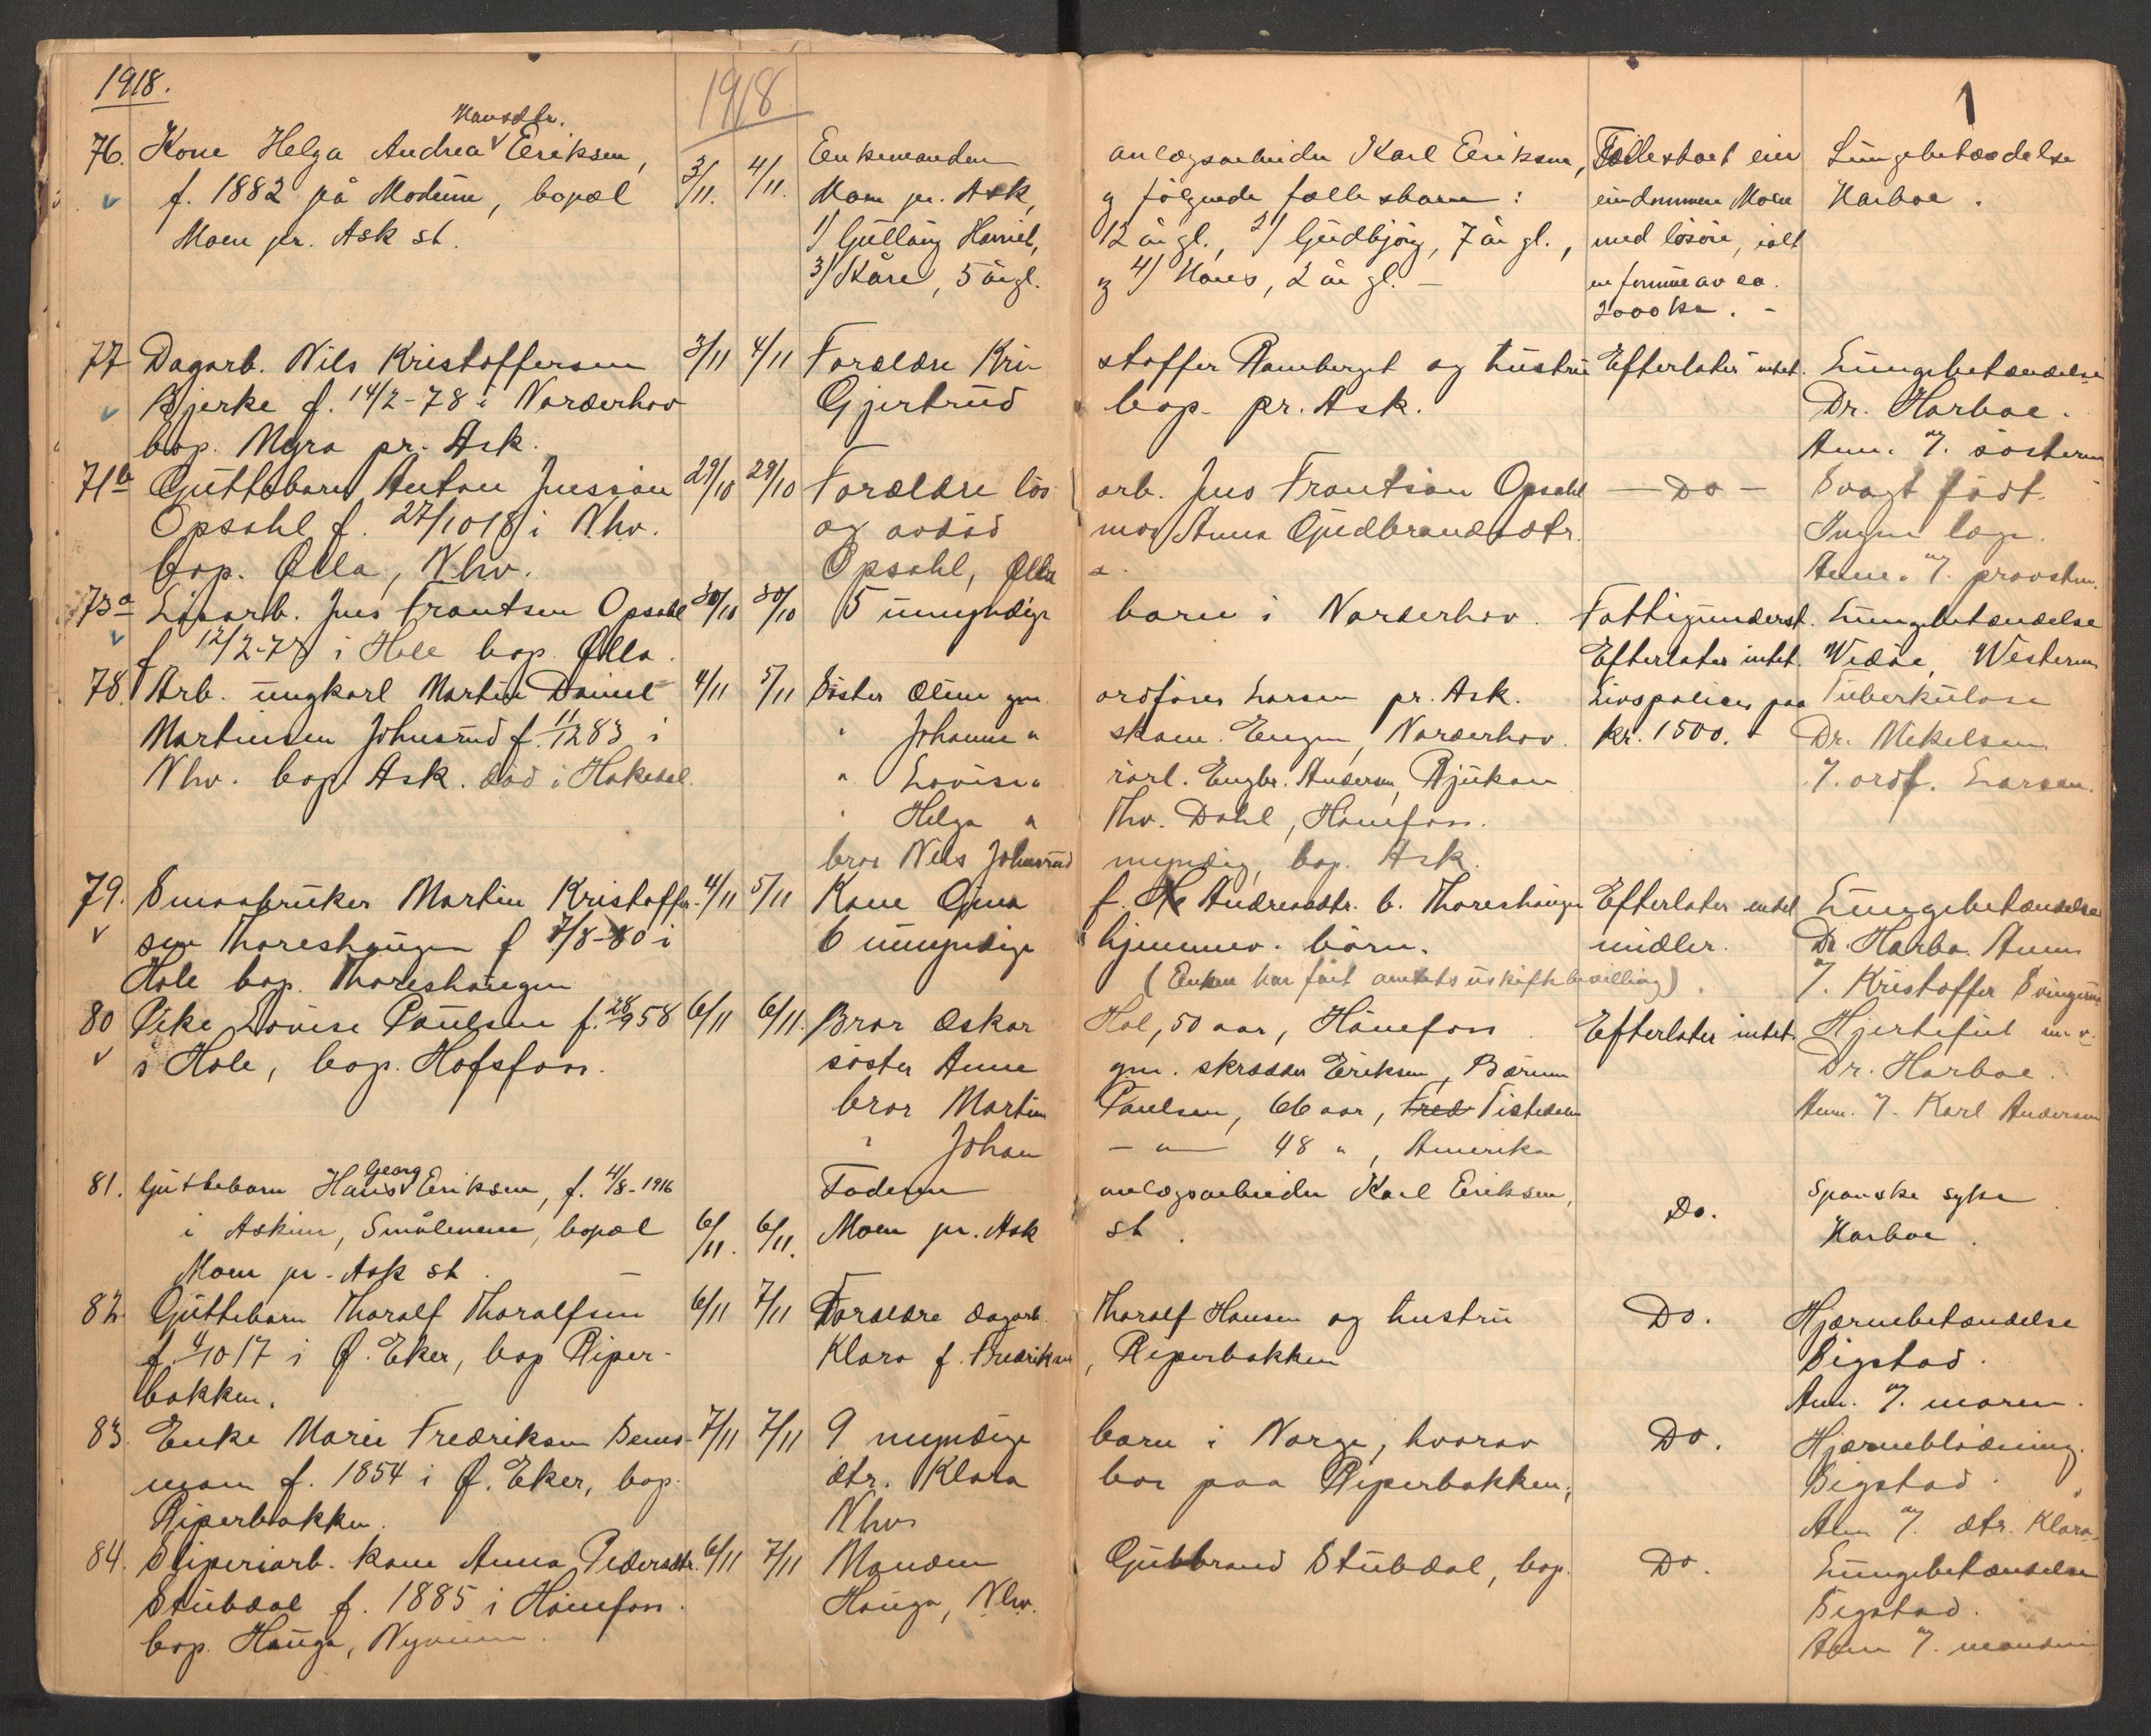 1918.
1918
1
Hansdtr.
76. Kone Helga Andrea ᵛ Eriksen, 3/11. 4/11. Enkemanden anlægsarbeider Karl Eriksen, Fællesboet eier Lungebetændelse
f. 1882 på Modum, bopæl Moen pr. Ask, og følgende fællesbarn: eiendommen Moen Harboe.
Moen pr. Ask st. 1) Gullaug Harriet, 12 år gl., 2) Gudbjørg, 7 år gl., med løsøre, ialt
3) Kåre, 5 år gl. og 4) Hans, 2 år gl. – en formue av ca.
2000 kr. –
77 Dagarb. Nils Kristoffersen 3/11 4/11 Forældre Kri- stoffer Ramberget og hustru Efterlater intet. Lungebetændelse
Bjerke f. 14/2-78 i Norderhov Gjertrud bop. pr. Ask. Dr. Harboe.
bop. Myra pr. Ask. Anm. af søsteren
71b Guttebarn Anton Jenssøn 29/10 29/10 Forældre løs- arb. Jens Frantsøn Opsahl – Do – Svagt født.
Opsahl f. 27/10 18 i Nhv. og avdød mor Anna Gudbrandsdtr. Ingen læge.
bop. Ølla, Nhv. Opsahl, Ølla Anm. af provsten.
73a Løsarb. Jens Frantsen Opsahl 30/10 30/10 5 umyndige barn i Norderhov. Fattigunderst. Lungebetændelse
f 12/2-78 i Hole bop. Ølla. Efterlater intet.
78. Arb. ungkarl Martin Daniel 4/11 5/11 Søster Oline gm. ordfører Larsen pr. Ask. Livspolicer paa Tuberkulose
Martinsen Johnsrud f. 11/12 83 i " Johanne " skom. Engen, Norderhov. kr. 1500. Dr. Mikelsen
Nhv. bop. Ask. død i Hakedal. " Lovise " rørl. Engbr. Andersen, Rjukan af ordf. Larsen.
" Helga " Thv. Dahl, Hønefoss.
bror Nils Johnsrud myndig, bop. Ask.
79. Smaabruker Martin Kristoffer- 4/11 5/11 Kone Gina f. Andreasdtr. b. Thoreshaugen Efterlater intet Lungebetændelse
sen Thoreshaugen f 7/8-80 i 6 umyndige hjemmev. børn. midler. Dr. Harbo. Anm.
Hole bop. Thoreshaugen (Enken har fåt amtets uskiftebevilling). af Kristoffer
80 Pike Lovise Paulsen f. 28/9 58 6/11 6/11. Bror Oskar Hol, 50 aar, Hønefoss Efterlater intet Hjertefeil m. v.
i Hole, bop. Hofsfoss. søster Anne gm. skrædder Eriksen, Bærum Dr. Harboe.
bror Martin Paulsen, 66 aar, Tistedalen Anm. af Karl Andersen
" Johan – " – 48 ", Amerika
Georg
81. Guttebarn Hans ᵛ Eriksen, f. 4/8-1916 Faderen anlægsarbeider Karl Eriksen, Spanske syke
i Askim, Smålenene, bopæl 6/11. 6/11. Moen pr. Ask st. Do. Harboe.
Moen pr. Ask st.
82. Guttebarn Thoralf Thoralfsen 6/11 7/11 Forældre dagarb. Thoralf Hansen og hustru Do. Hjernebetændelse
f. 4/10 17 i Ø. Eker, bop Riper- Klara f. Fredriksen, Riperbakken Sigstad.
bakken. Anm. af moren.
83. Enke Marie Fredriksen Bems- 7/11 7/11 9 myndige barn i Norge, hvorav Do. Hjerneblødning.
moen f. 1854 i Ø. Eker, bop. dtr. Klara bor paa Riperbakken, Sigstad.
Riperbakken. Nhv. Anm af dtr. Klara
84. Sliperiarb. kone Anna Pedersdtr. 6/11 7/11 Manden Gudbrand Stubdal, bop. Do. Lungebetændelse
Stubdal f. 1885 i Hønefoss. Hauga, Nhv. Sigstad.
bop. Hauga, Anm af manden